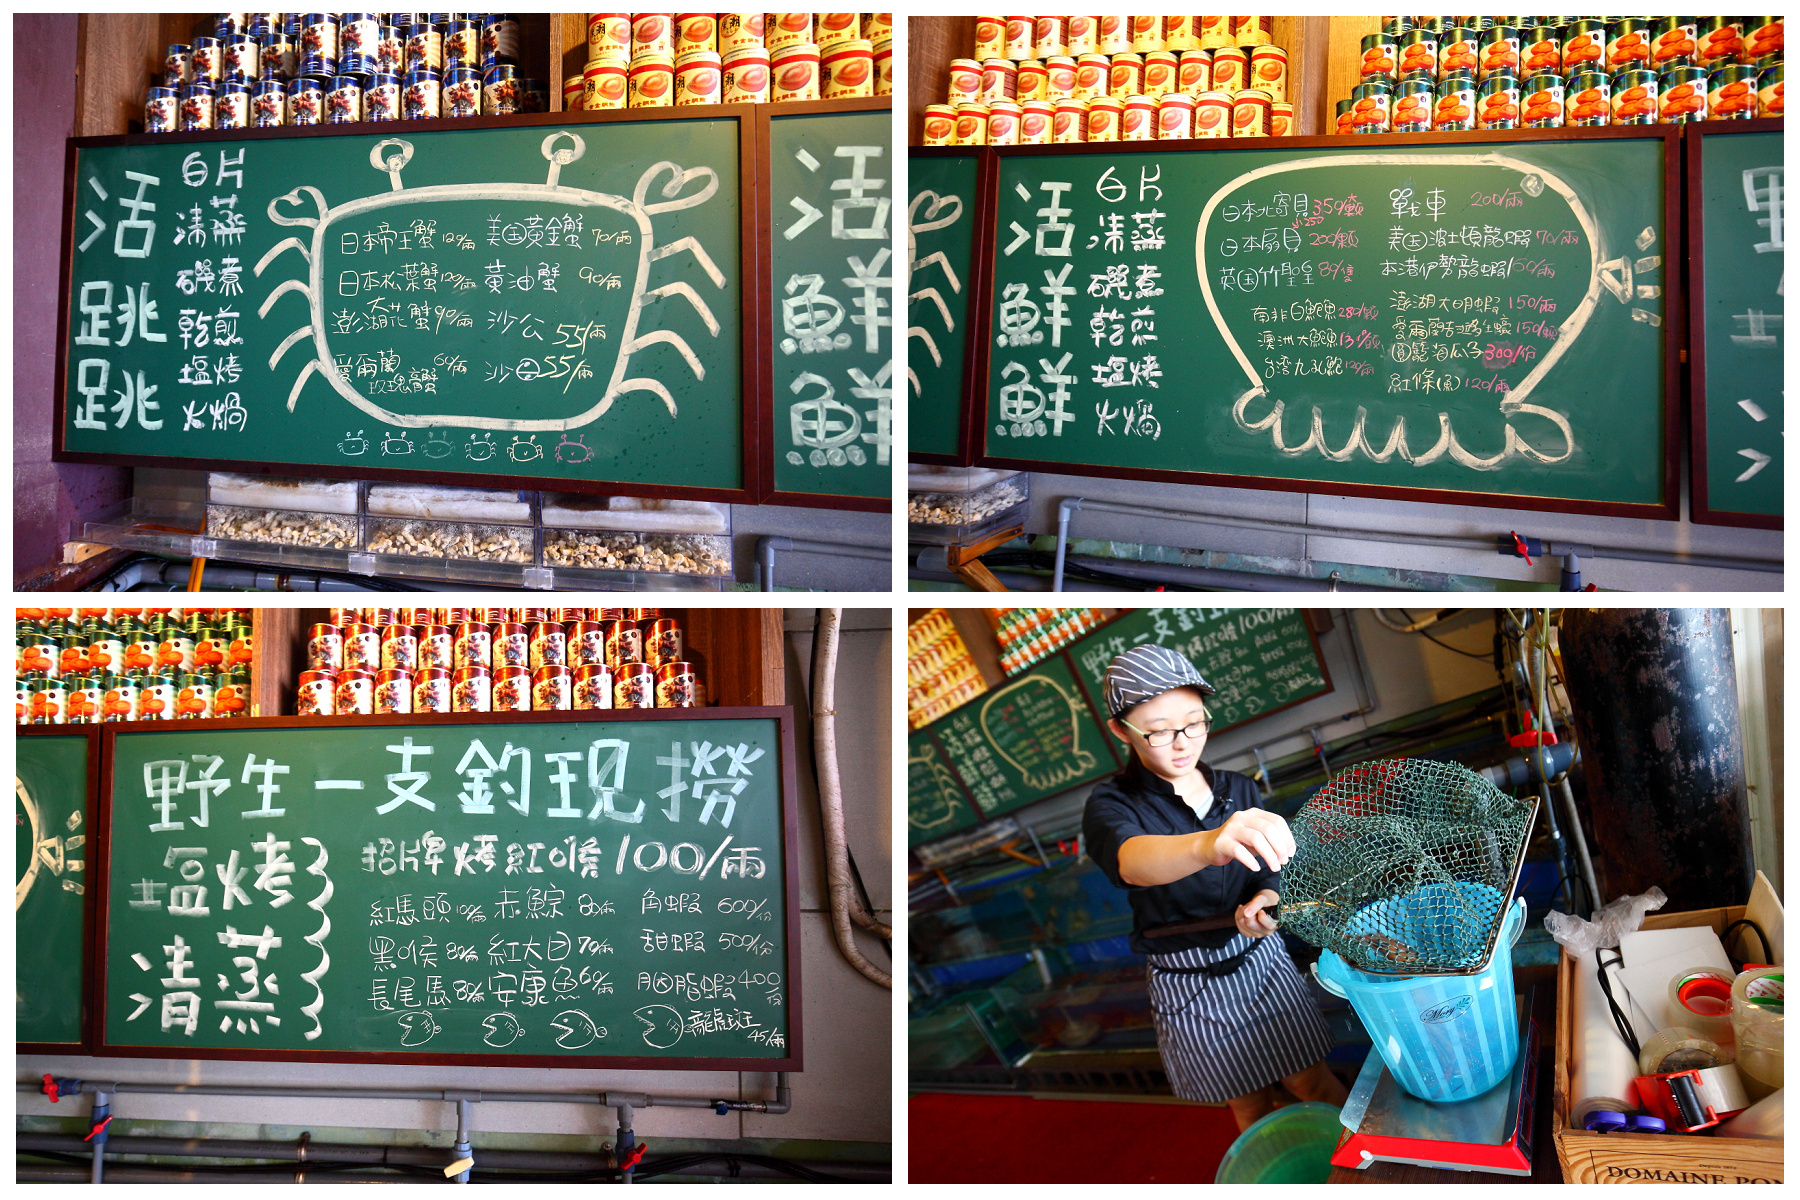 活跳跳
白片
清蒸
磯煮
乾煎
塩烤
火鍋
日本帝王蟹120/兩
美国黃金蟹70/兩
日本松葉蟹120/兩
黃油蟹90/兩
澎湖大花蟹90/兩
沙公55/兩
愛爾蘭玫瑰蟹60/兩
沙母55/兩
活鮮
活鮮鮮
白片
清蒸
磯煮
乾煎
塩烤
火鍋
日本北寄貝350/顆
日本扇貝200/顆
英国竹聖皇89/隻
南非白鮑魚280/顆
澳洲大鮑魚
台湾九孔鮑120/兩
戰車200/兩
美国波士頓龍蝦70/兩
本港伊勢龍蝦160/兩
澎湖大明蝦150/兩
150/顆
300/份
紅條(魚)120/兩
野生一支釣現撈
塩烤
清蒸
招牌烤紅喉100/兩
紅馬頭100/兩
赤鯮80/兩
角蝦600/份
黑喉80/兩
紅大目70/兩
甜蝦500/份
長尾鳥80/兩
安康魚60/兩
胭脂蝦400/份
龍虎斑45/兩
野生一支釣現
100/兩
Mory
DOMAINE PON